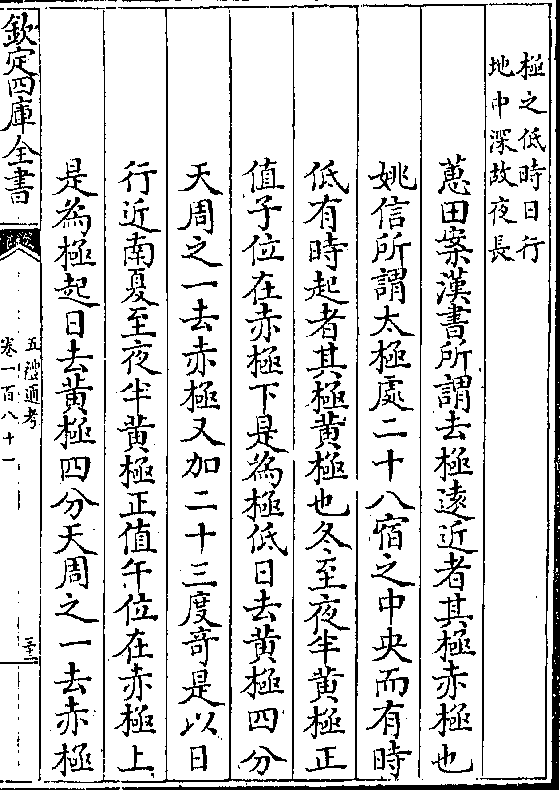 極之低時日行
地中深故夜長
蕙田案漢書所謂去極遠近者其極赤極也
姚信所謂太極處二十八宿之中央而有時
低有時起者其極黃極也冬至夜半黃極正
值子位在赤極下是為極低日去黃極四分
天周之一去赤極又加二十三度竒是以日
行近南夏至夜半黃極正值午位在赤極上
是為極起日去黃極四分天周之一去赤極
欽定四庫全書
五禮通考
卷一百八十一